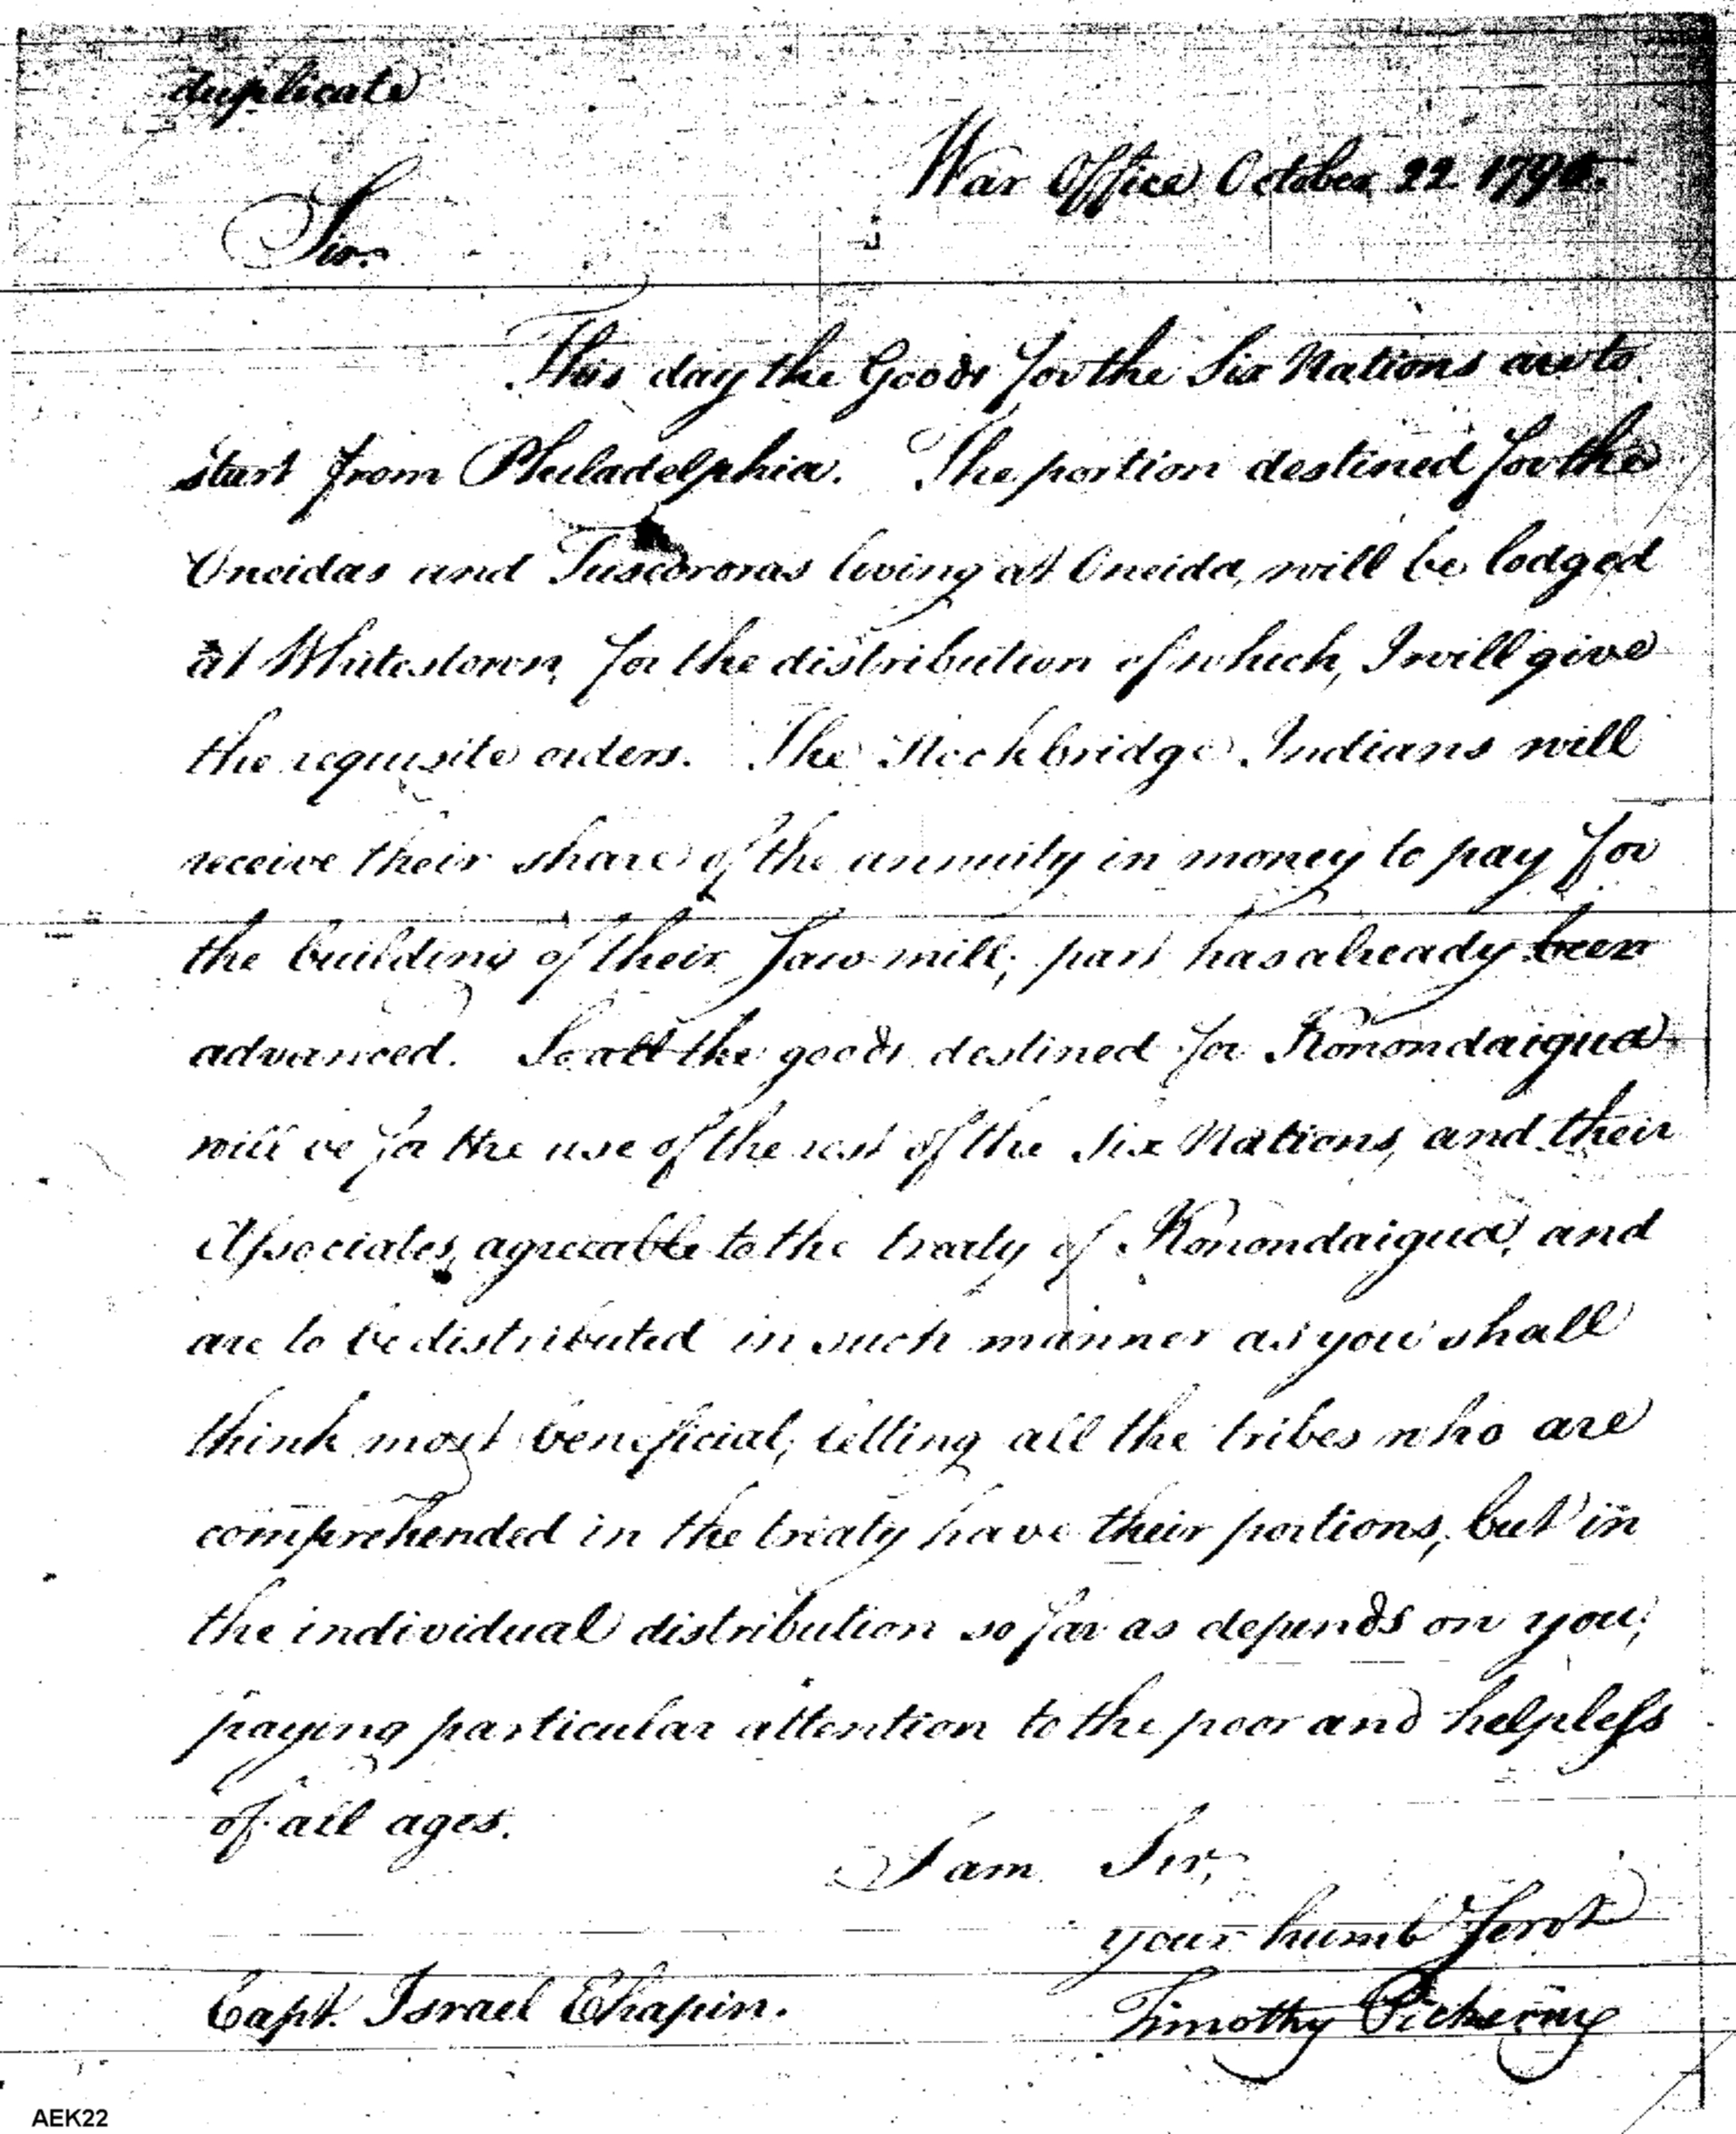 duplicate
War Office October 22. 1795.
Sir.
This day the Goods for the Six Nations are to
start from Philadelphia. The portion destined for the
Oneidas and Tuscororas living at Oneida, will be lodged
at Whitestown, for the distribution of which, I will give
the requisite orders. The Stockbridge Indians will
receive their share of the annuity in money to pay for
the building of their Saw mill; part has already been
advanced. So all the goods destined for Konondaigua
will be for the use of the rest of the Six Nations, and their
Associates, agreeable to the treaty of Konondaigua, and
are to be distributed in such manner as you shall
think most beneficial; letting all the tribes who are
comprehended in the treaty have their portions, but in
the individual distribution so far as depends on you,
paying particular attention to the poor and helpless
of all ages.
I am Sir,
your humb Servt
Capt. Israel Chapin.
Timothy Pickering
AEK22